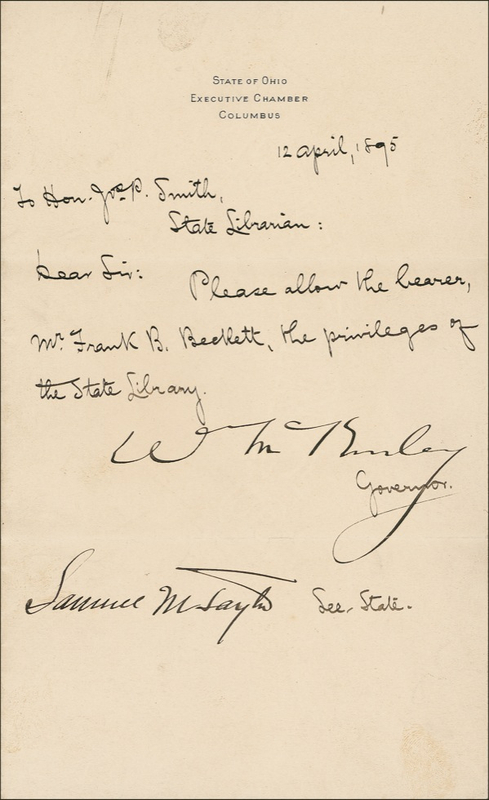 STATE OF OHIO
EXECUTIVE CHAMBER
COLUMBUS
12 april, 1895
To Hon. Jos. P. Smith,
State Librarian:
Dear Sir: Please allow the bearer,
Mr. Frank B. Beckett, the privileges of
the State Library.
W McKinley
Governor.
Samuel M Taylor Sec. State.